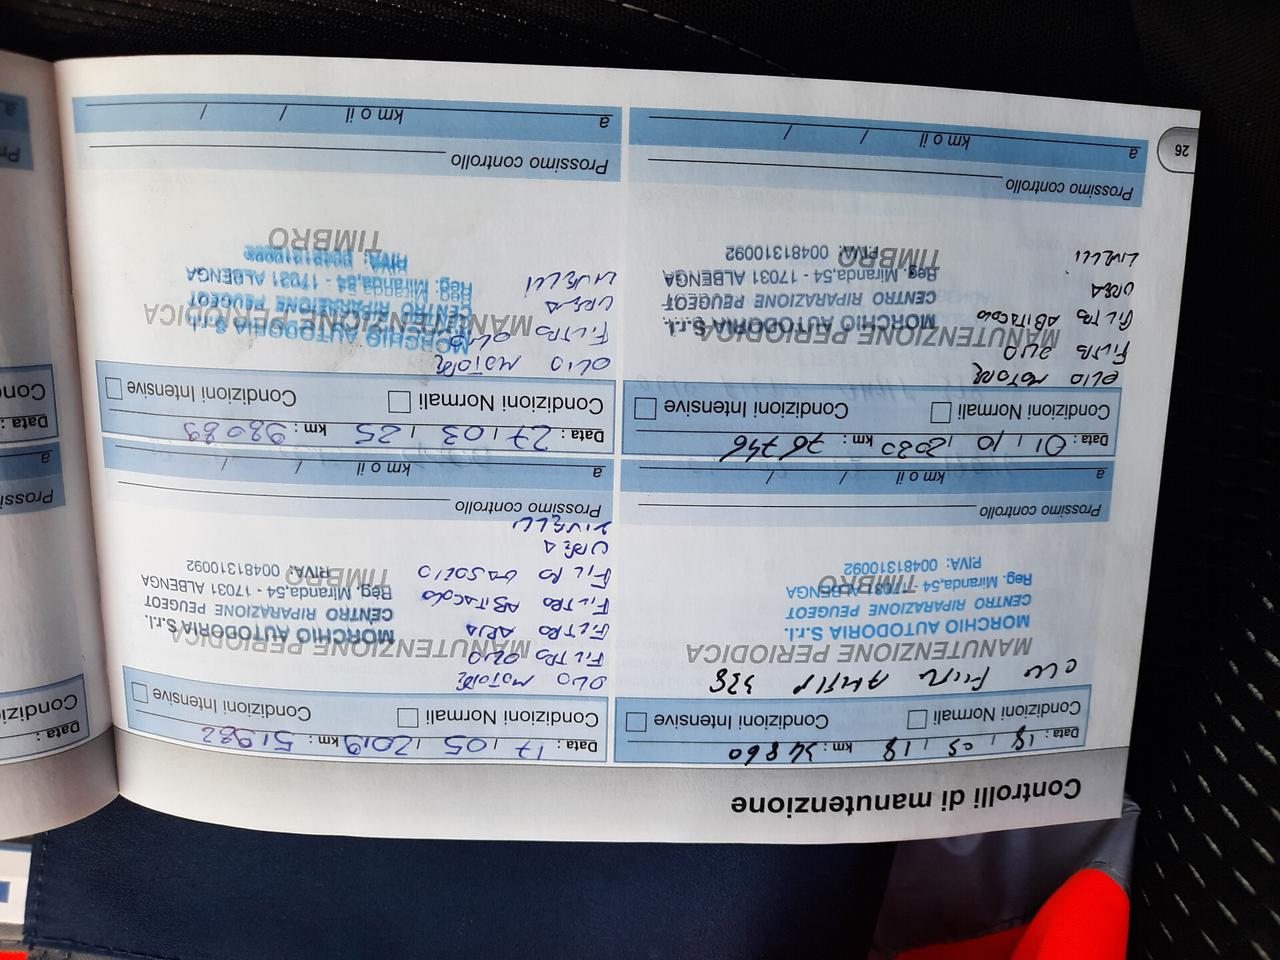 Controlli di manutenzione
Data : 18 / 05 / 18 km : 34860
Condizioni Normali Condizioni Intensive
MANUTENZIONE PERIODICA
MORCHIO AUTODORIA S.r.l.
CENTRO RIPARAZIONE PEUGEOT
Reg. Miranda,54 - 17031 ALBENGA
TIMBRO
P.IVA: 00481310092
Prossimo controllo
a km o il / /
Data : 17 / 05 / 2019 km : 51982
Condizioni Normali Condizioni Intensive
OLIO MOTORE
FILTRO OLIO
MANUTENZIONE PERIODICA
FILTRO ARIA
MORCHIO AUTODORIA S.r.l.
FILTRO ABITACOLO
CENTRO RIPARAZIONE PEUGEOT
FILTRO GASOLIO
Reg. Miranda,54 - 17031 ALBENGA
TIMBRO
P.IVA: 00481310092
UREA
LIVELLI
Prossimo controllo
a km o il / /
Data : 01 / 10 / 2020 km : 76746
Condizioni Normali Condizioni Intensive
OLIO MOTORE
FILTRO OLIO
MANUTENZIONE PERIODICA
FILTRO ABITACOLO
MORCHIO AUTODORIA S.r.l.
UREA
CENTRO RIPARAZIONE PEUGEOT
Reg. Miranda,54 - 17031 ALBENGA
LIVELLI
TIMBRO
P.IVA: 00481310092
Prossimo controllo
a km o il / /
Data : 27 / 03 / 25 km : 98089
Condizioni Normali Condizioni Intensive
OLIO MOTORE
FILTRO OLIO
MANUTENZIONE PERIODICA
UREA
MORCHIO AUTODORIA S.r.l.
LIVELLI
CENTRO RIPARAZIONE PEUGEOT
Reg. Miranda,54 - 17031 ALBENGA
TIMBRO
P.IVA: 00481310092
Prossimo controllo
a km o il / /
26